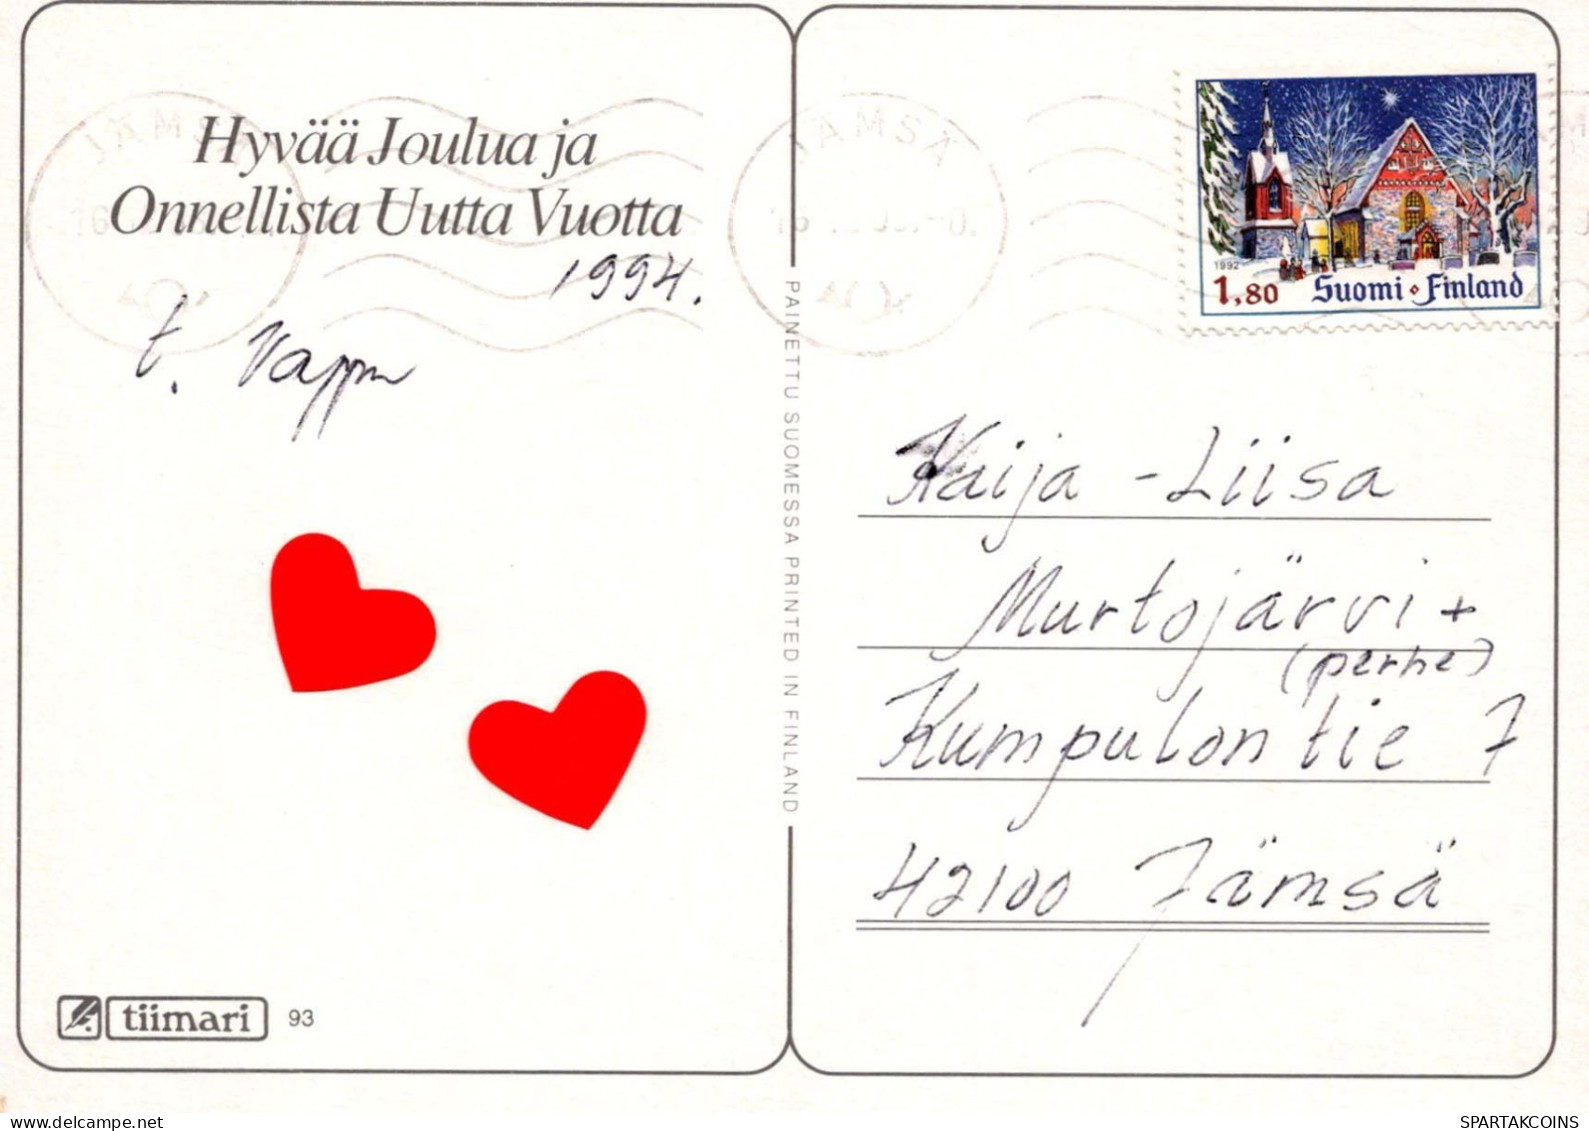 Hyvää Joulua ja
Onnellista Uutta Vuotta
1994.
t. Vappu
tiimari 93
PAINETTU SUOMESSA PRINTED IN FINLAND
JÄMSÄ
JÄMSÄ
1992
1,80 Suomi Finland
Kaija-Liisa
Murtojärvi +
(perhe)
Kumpulontie 7
42100 Jämsä
delcampe.net
SPARTAKCOINS